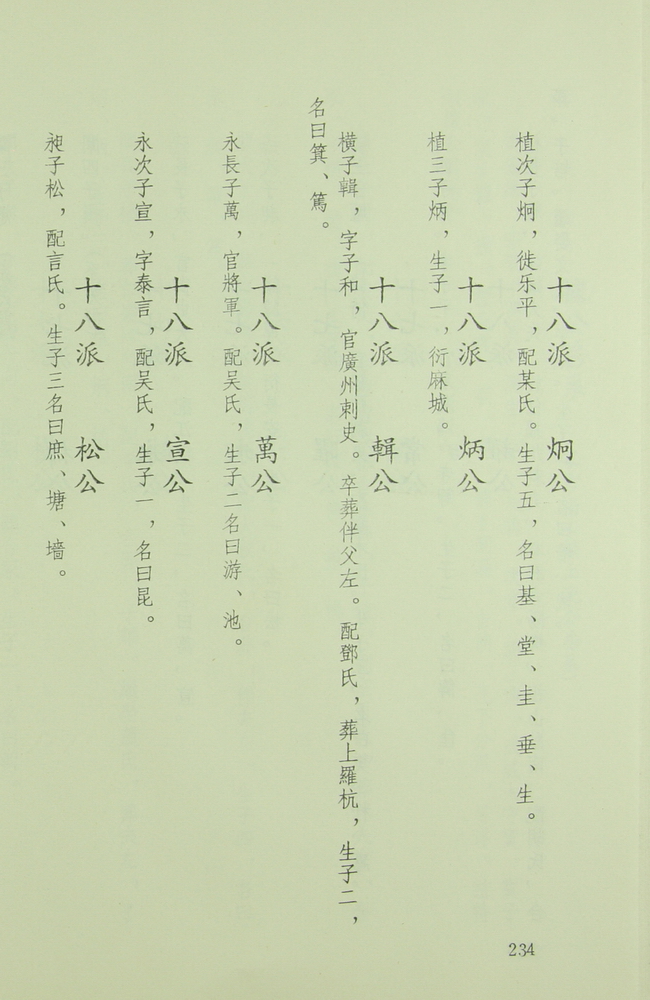 十八派 炯公
植次子炯，徙乐平，配某氏。生子五，名曰基、堂、圭、垂、生。
十八派 炳公
植三子炳，生子一，衍麻城。
十八派 輯公
橫子輯，字子和，官廣州刺史。卒葬伴父左。配鄧氏，葬上羅杭，生子二，
名曰箕、篤。
十八派 萬公
永長子萬，官將軍。配吴氏，生子二名曰游、池。
十八派 宣公
永次子宣，字泰言，配吴氏，生子一，名曰昆。
十八派 松公
昶子松，配言氏。生子三名曰庶、塘、墻。
234